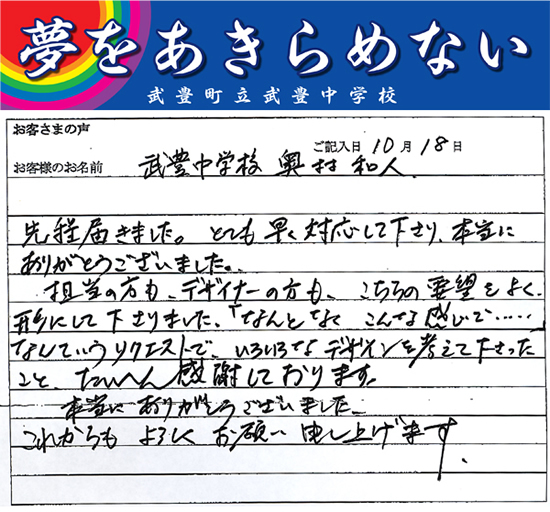 夢をあきらめない
武豊町立武豊中学校
お客さまの声
ご記入日 10月18日
お客様のお名前 武豊中学校 奥村和人.
先程届きました。とても早く対応して下さり、本当に
ありがとうございました。
担当の方も、デザイナーの方も、こちらの要望をよく
形にして下さりました、「なんとなく こんな感じで……
なんていうリクエストで、いろいろなデザインを考えて下さった
こと、たいへん感謝しております。
本当にありがとうございました。
これからも よろしく お願い 申し上げます.